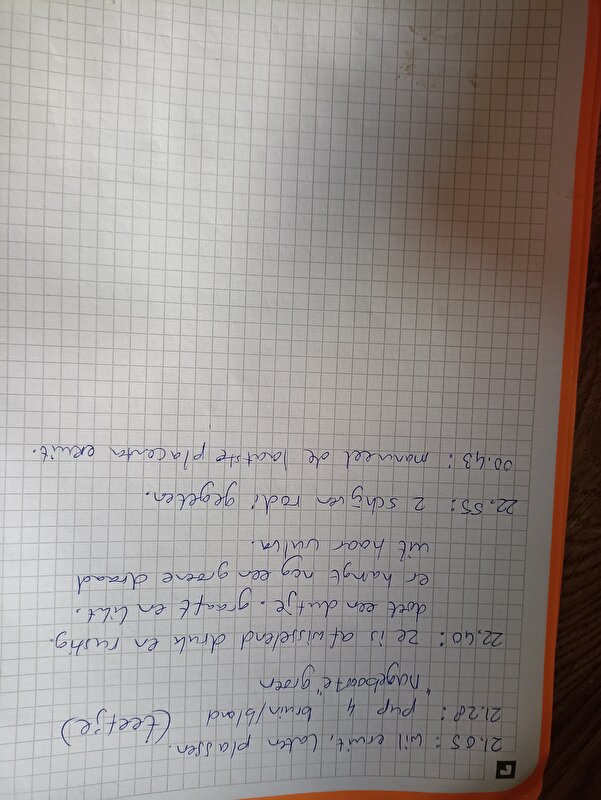 21.05: wil eruit, laten plassen.
21.28: pup 4 bruin/bland (teefje)
"nageboorte" groen
22.40: ze is afwisselend druk en rustig.
doet een dutje. graaft en likt.
er hangt nog een groene draad
uit haar vulva.
22.55: 2 schijven rodi gegeten.
00.43: manueel de laatste placenta eruit.